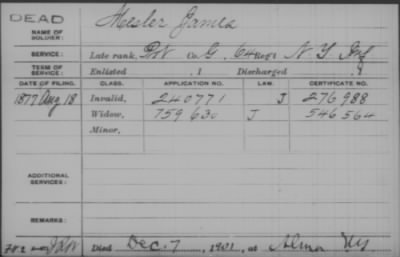 DEAD
NAME OF SOLDIER: Hesler James
SERVICE: Late rank, Pvt Co. G, 64 Reg't N. Y. Inf
TERM OF SERVICE: Enlisted , 1 Discharged , 1
DATE OF FILING. CLASS. APPLICATION NO. LAW. CERTIFICATE NO.
1877 Aug 18 Invalid, 240771 J 276988
Widow, 759630 J 546564
Minor,
ADDITIONAL SERVICES:
REMARKS:
Died Dec. 7, 1901, at Alma NY